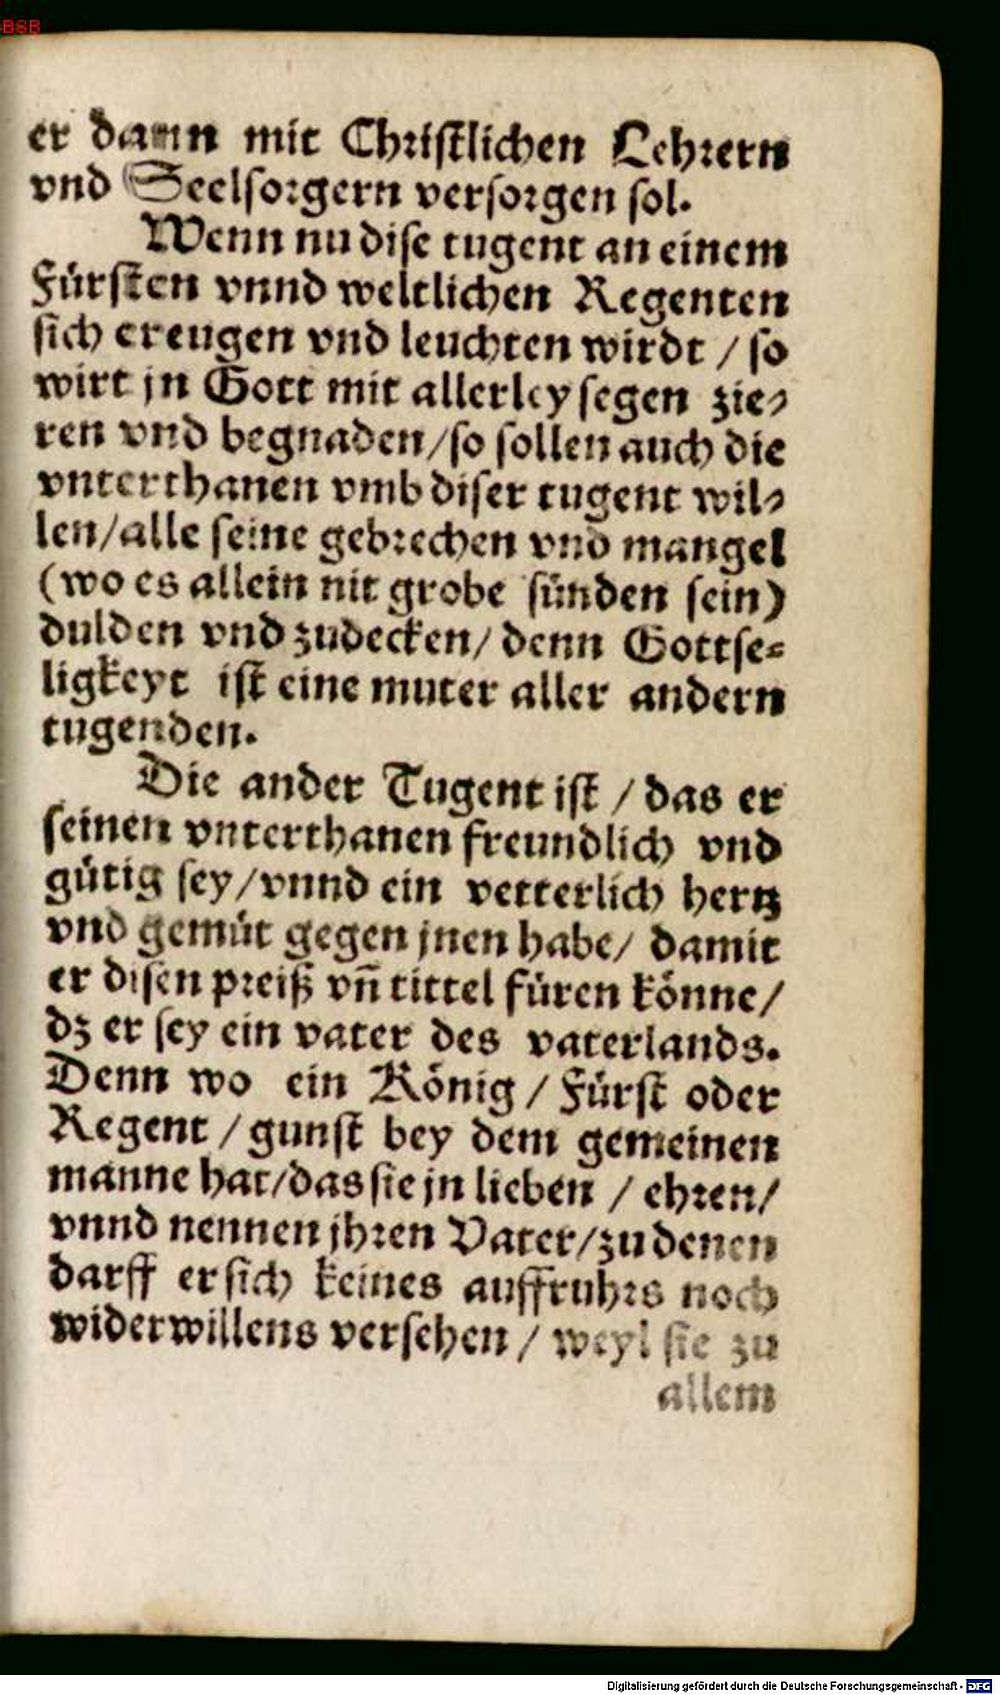 BSB
er dann mit Chriſtlichen Lehrern
vnd Seelſorgern verſorgen ſol.
Wenn nu diſe tugent an einem
Fürſten vnnd weltlichen Regenten
ſich ereugen vnd leuchten wirdt / ſo
wirt jn Gott mit allerley ſegen zie⸗
ren vnd begnaden/ſo ſollen auch die
vnterthanen vmb diſer tugent wil⸗
len/alle ſeine gebrechen vnd mangel
(wo es allein nit grobe ſünden ſein)
dulden vnd zudecken/ denn Gottſe⸗
ligkeyt iſt eine muter aller andern
tugenden.
Die ander Tugent iſt / das er
ſeinen vnterthanen freundlich vnd
gütig ſey/vnnd ein vetterlich hertz
vnd gemüt gegen jnen habe/ damit
er diſen preiß vñ tittel füren könne/
dz er ſey ein vater des vaterlands.
Denn wo ein König / Fürſt oder
Regent / gunſt bey dem gemeinen
manne hat/das ſie jn lieben / ehren/
vnnd nennen jhren Vater/zu denen
darff er ſich keines auffruhrs noch
widerwillens verſehen / weyl ſie zu
allem
Digitalisierung gefördert durch die Deutsche Forschungsgemeinschaft - DFG